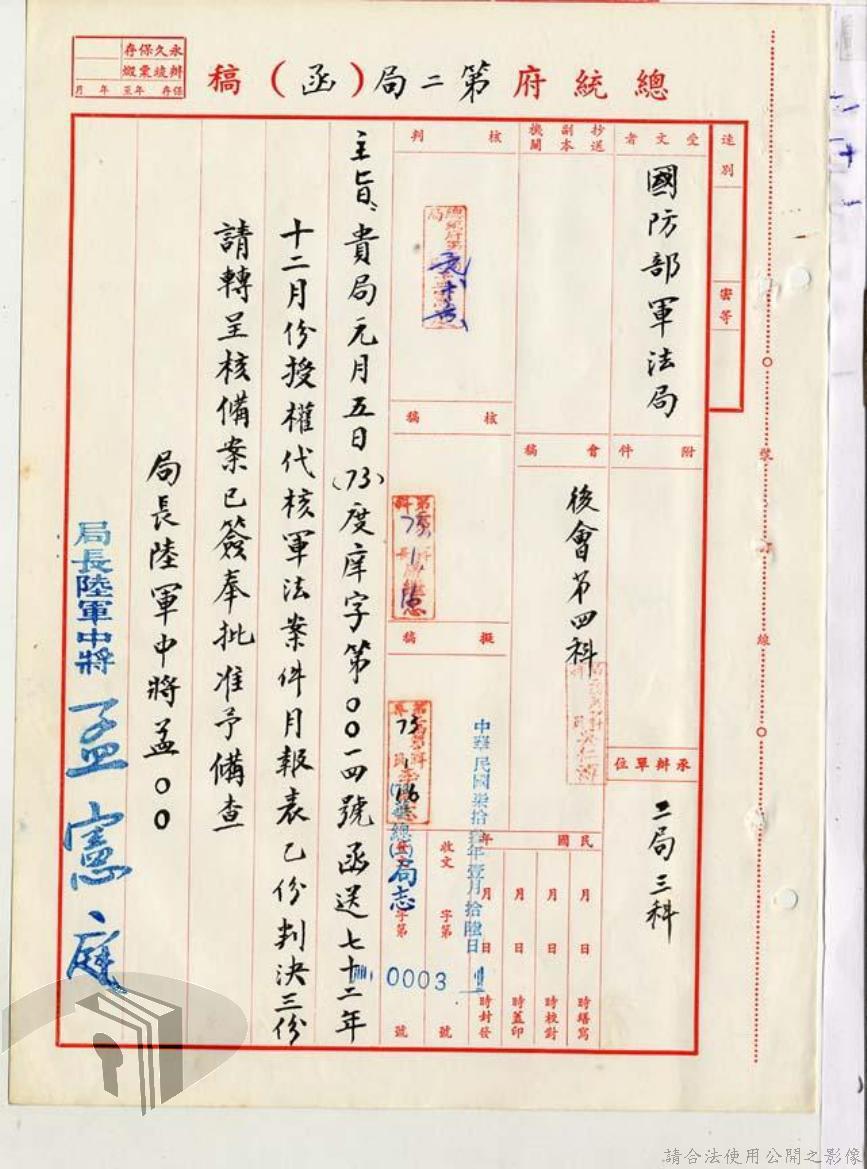 總統府第二局(函)稿
永久保存
辦竣彙繳
保存 年至 年 月
速別
密等
受文者
國防部軍法局
附件
承辦單位
二局三科
抄送副本機關
會稿
後會第四科
民國 年
月 日 時繕寫
月 日 時校對
月 日 時蓋印
月 日 時封發
中華民國柒拾叁年壹月拾陸日
收文 字第 號
字第 0003 號
局志
核判
核稿
擬稿
73 1 16
主旨、貴局元月五日(73)度庠字第00一四號函送七十二年
十二月份授權代核軍法案件月報表乙份判決三份
請轉呈核備案已簽奉批准予備查
局長陸軍中將孟00
局長陸軍中將孟憲庭
號
線
請合法使用公開之影像